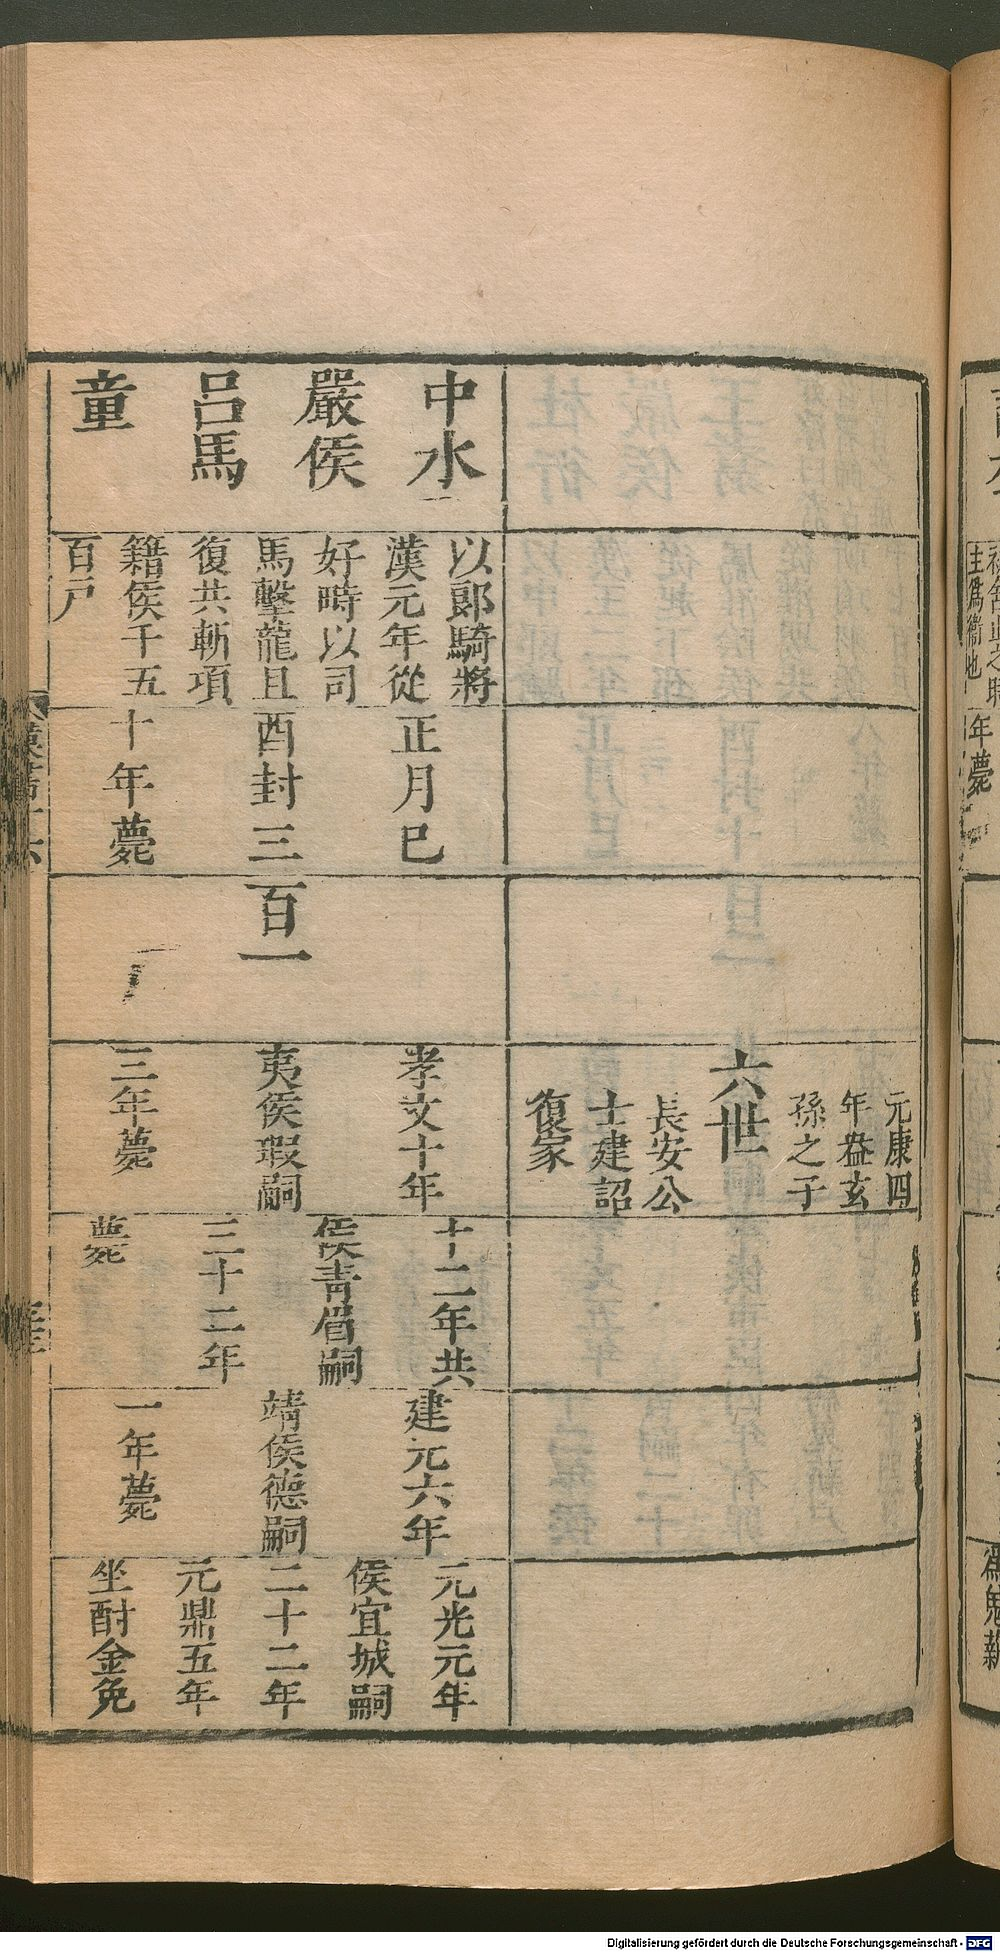 元康四
年嗧玄
孫之子
六世
長安公
士建詔
復家
中水
嚴侯
呂馬
童
以郎騎將
漢元年從
好畤以司
馬擊龍且
復共斬項
籍侯千五
百戶
正月巳
酉封三
十年薨
百一
孝文十年
夷侯瑕嗣
三年薨
十二年共
侯青眉嗣
三十二年
薨
建元六年
靖侯德嗣
一年薨
元光元年
侯宜城嗣
二十二年
元鼎五年
坐酎金免
年薨
Digitalisierung gefördert durch die Deutsche Forschungsgemeinschaft - DFG